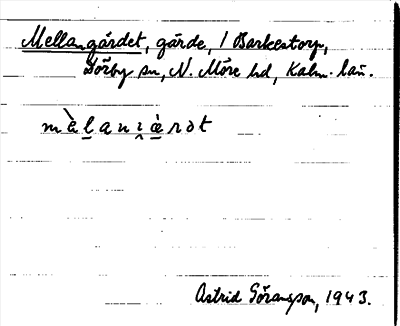 Mellangärdet, gärde, / Barkestorp,
Dörby sn, N. Möre hd, Kalm. län.
mèḷani̯æ̣rət
Astrid Göransson, 1943.